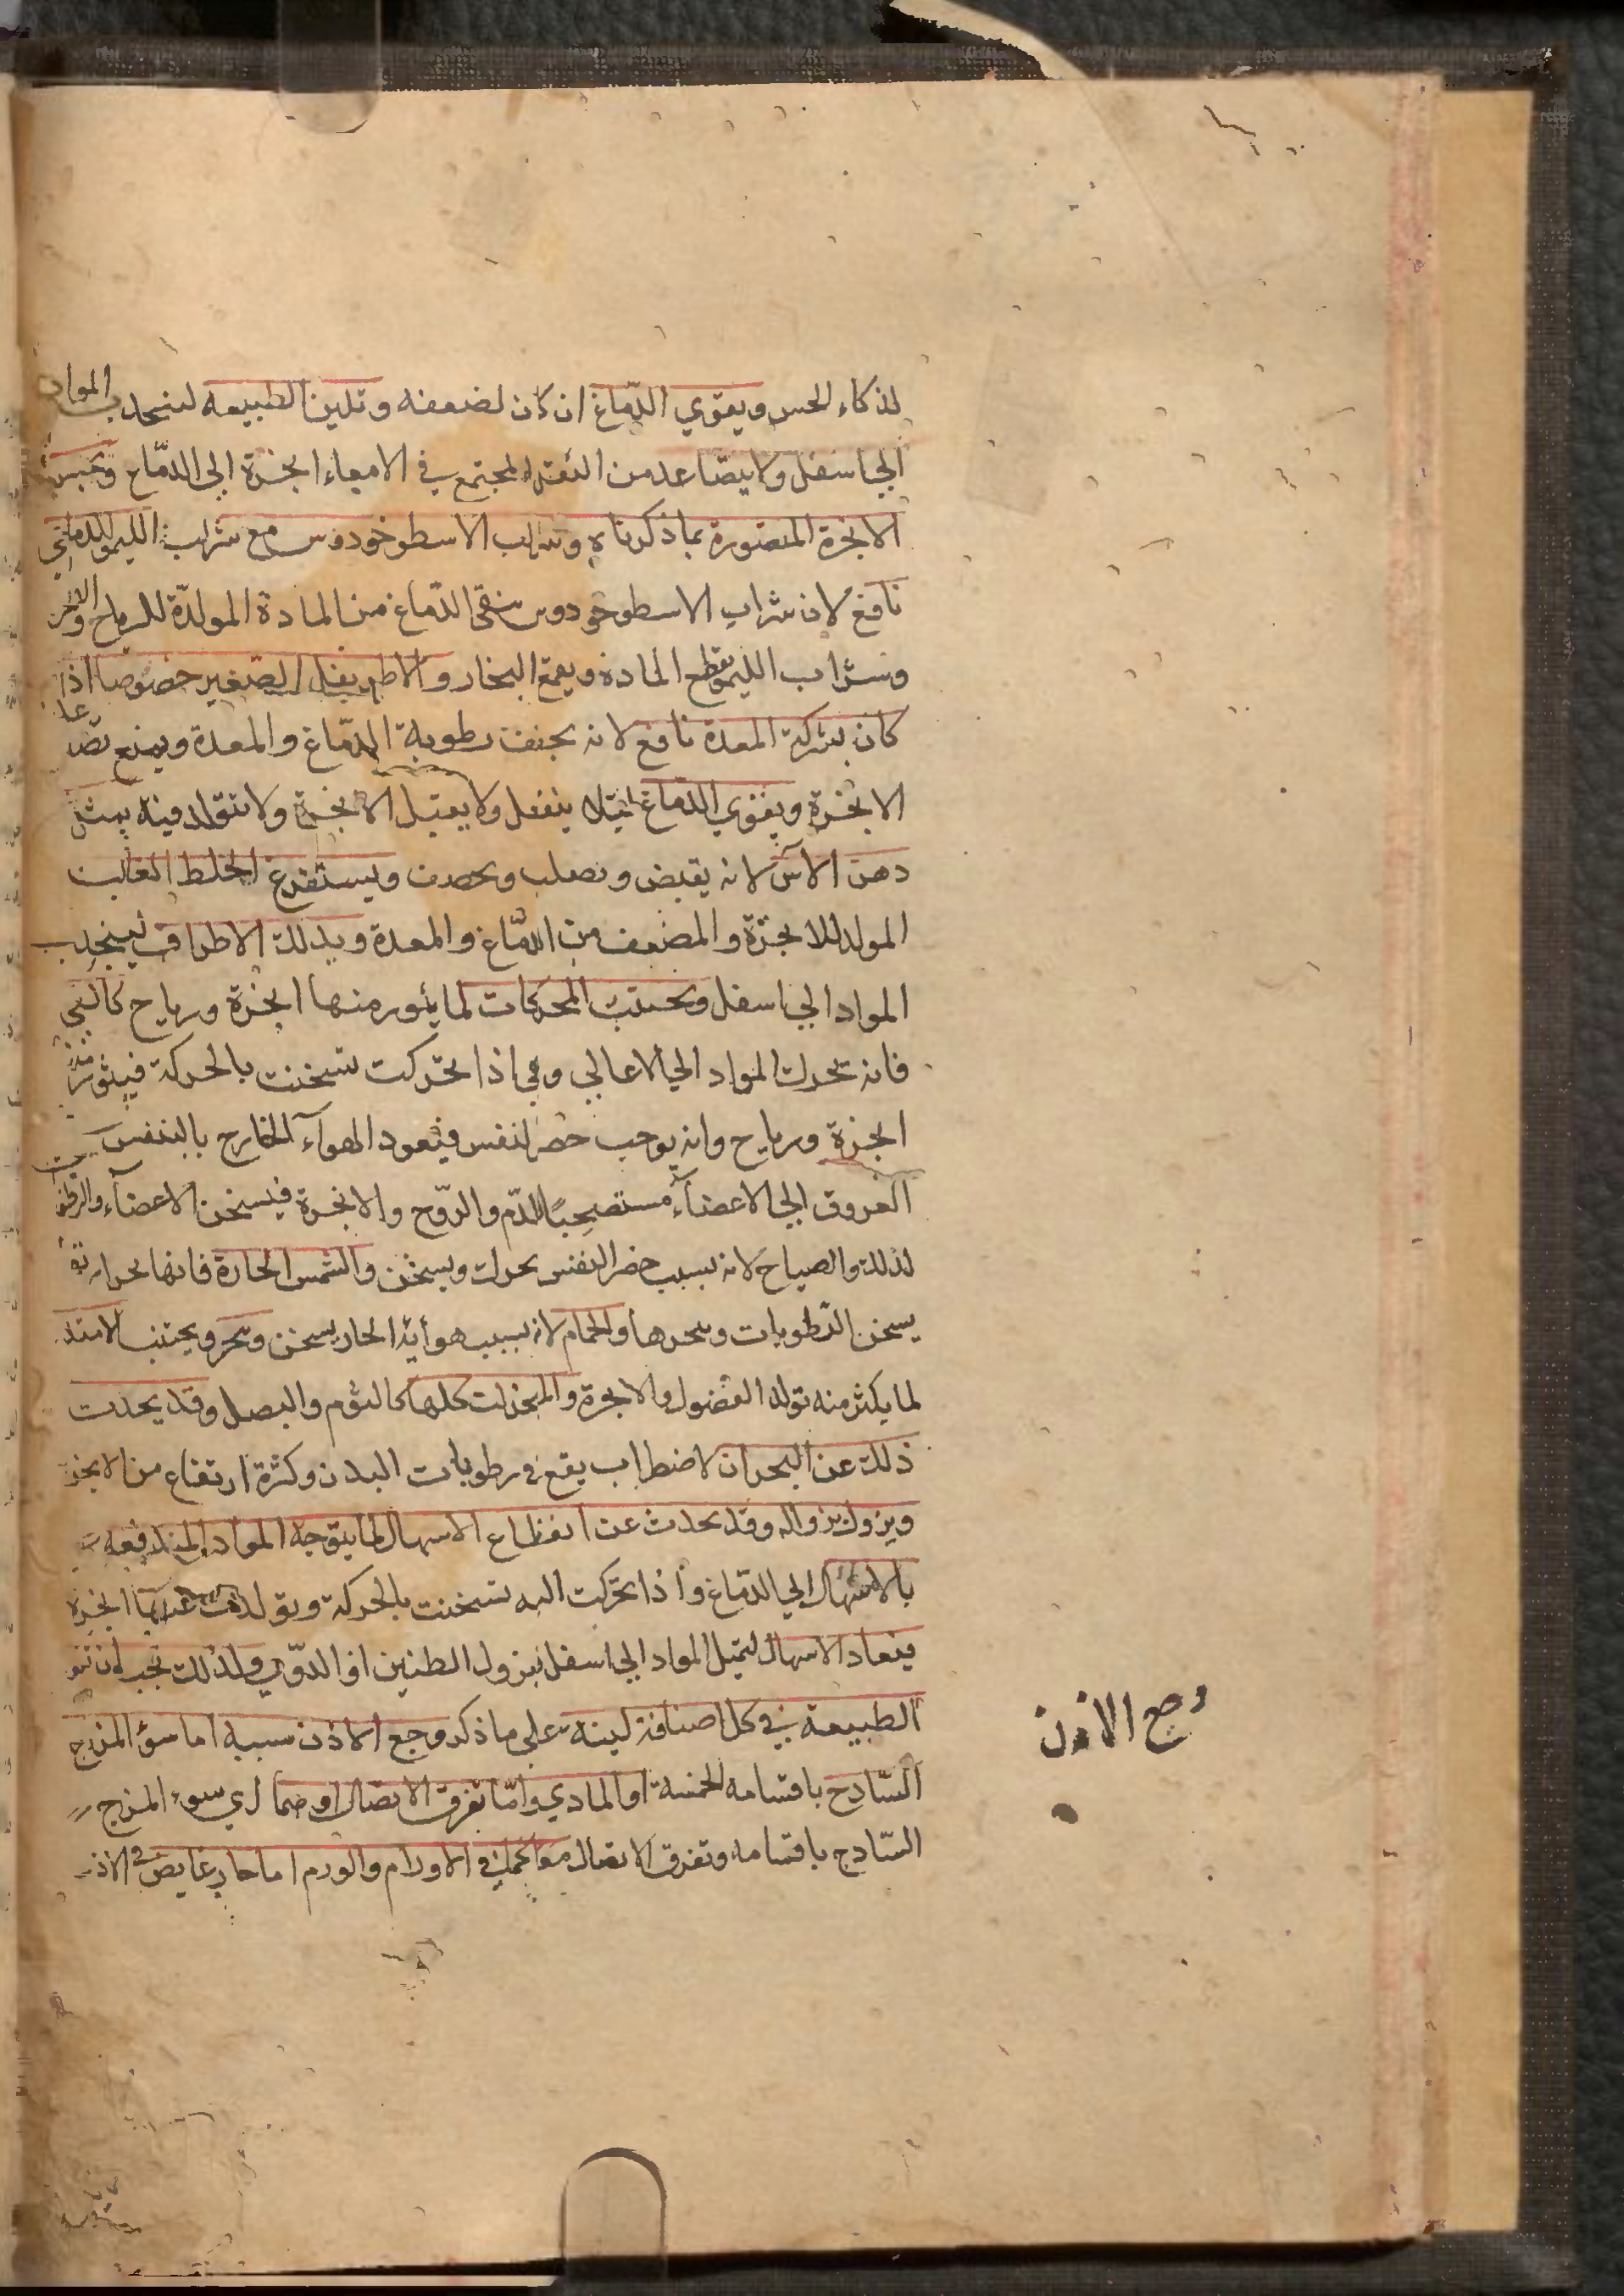 لذكاء الحس ويقوي الدماغ ان كان لضعفه وتلين الطبيعه لينجذب المواد
الي اسفل ولا يتصاعد من الثفل المجتمع في الامعاء ابخرة الي الدماغ وتحبس
الابخرة المتصورة بما ذكرناه وشراب الاسطوخودوس مع شراب الليمو
نافع لان شراب الاسطوخودوس ينقى الدماغ من المادة المولدة للرياح
وشراب الليمو يقطع المادة ويقمع البخار والاطريفل الصغير خصوصا اذا
كان بشركة المعدة نافع لانه يجفف رطوبة الدماغ والمعدة ويمنع تصاعد
الابخرة ويقوي الدماغ لئلا ينفعل ولا يقبل الابخرة ولا تتولد فيه يمثل
دهن الآس لانه يقبض ويصلب ويحصف ويستفرغ الخلط الغالب
المولد للابخرة والمضعف من الدماغ والمعدة ويدلك الاطراف لينجذب
المواد الي اسفل ويجتنب المحركات لما يثور منها ابخرة ورياح كالقي
فانه تحرك المواد الي الاعالي وهي اذا تحركت تسخنت بالحركة فيثور
ابخرة ورياح وانه يوجب حصر النفس فيعود الهوآء الخارج بالتنفس
العروق الي الاعضآء مستصحبًا للدّم والروح والابخرة فيسخن الاعضآء والرطوبات
لذلك والصياح لانه بسبب حصر النفس يحرك ويسخن والشمس الحارة فانها بحرارتها
يسخن الرطوبات ويبخرها والحمام لانه بسبب هوائه الحار يسخن ويبخر ويجتنب الامتلا
لما يكثر منه تولد الفضول والابخرة والمبخرات كلها كالثوم والبصل وقد يحدث
ذلك عن البحران لاضطراب يقع في رطوبات البدن وكثرة ارتفاع من الابخرة
ويزول بزواله وقد يحدث عن انقطاع الاسهال لما يتوجه المواد المندفعه
بالاسهال الي الدماغ واذا تحركت اليه تسخنت بالحركة وتولدت عنها ابخرة
فيعاد الاسهال لتميل المواد الي اسفل فيزول الطنين او الدوي ولذلك تجب ان تبقى
الطبيعة في كل اصنافه لينه على ما ذكر وجع الاذن سببه اما سؤ المزاج
السّاذج باقسامه الخمسة او المادي وامّا تفرق الاتصال او هما اي سوء المزاج
السّاذج باقسامه وتفرق الاتصال معا كما في الاورام والورم اما حار غايص في الاذن
وجع الاذن